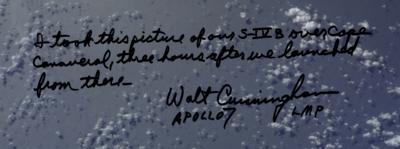 I took this picture of our S-IVB over Cape
Canaveral, three hours after we launched
from there—
Walt Cunningham
APOLLO 7 LMP